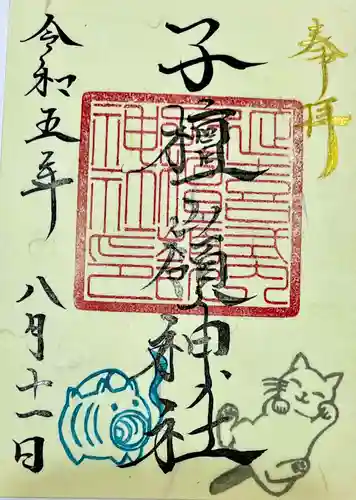 奉拝
子檀嶺神社
令和五年 八月十一日